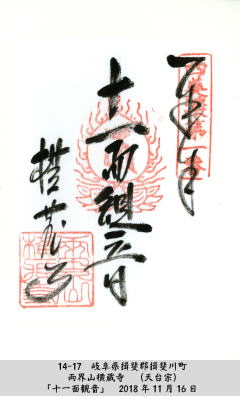 奉拝
十一面観音
横蔵寺
14-17 岐阜県揖斐郡揖斐川町
両界山横蔵寺 (天台宗)
「十一面観音」 2018年11月16日